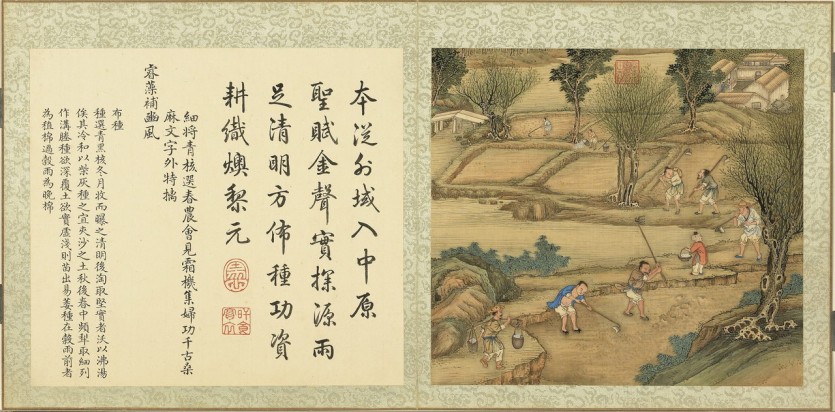 本從外域入中原
聖賦金聲實探源雨
足清明方佈種功資
耕織燠黎元
細將青核選春農會見霜機集婦功千古桑
麻文字外特摛
睿藻補豳風
布種
種選青黑核冬月收而曝之清明後淘取堅實者沃以沸湯
俟其冷和以柴灰種之宜夾沙之土秋後春中頻犂取細列
作溝塍種欲深覆土欲實虛淺則苗出易萎種在穀雨前者
為植棉過穀雨為晚棉